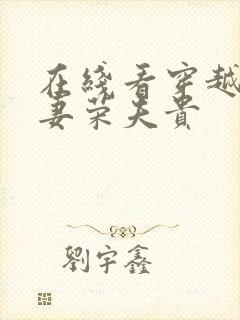 在綫看穿越
妻荣夫贵
劉宇鑫